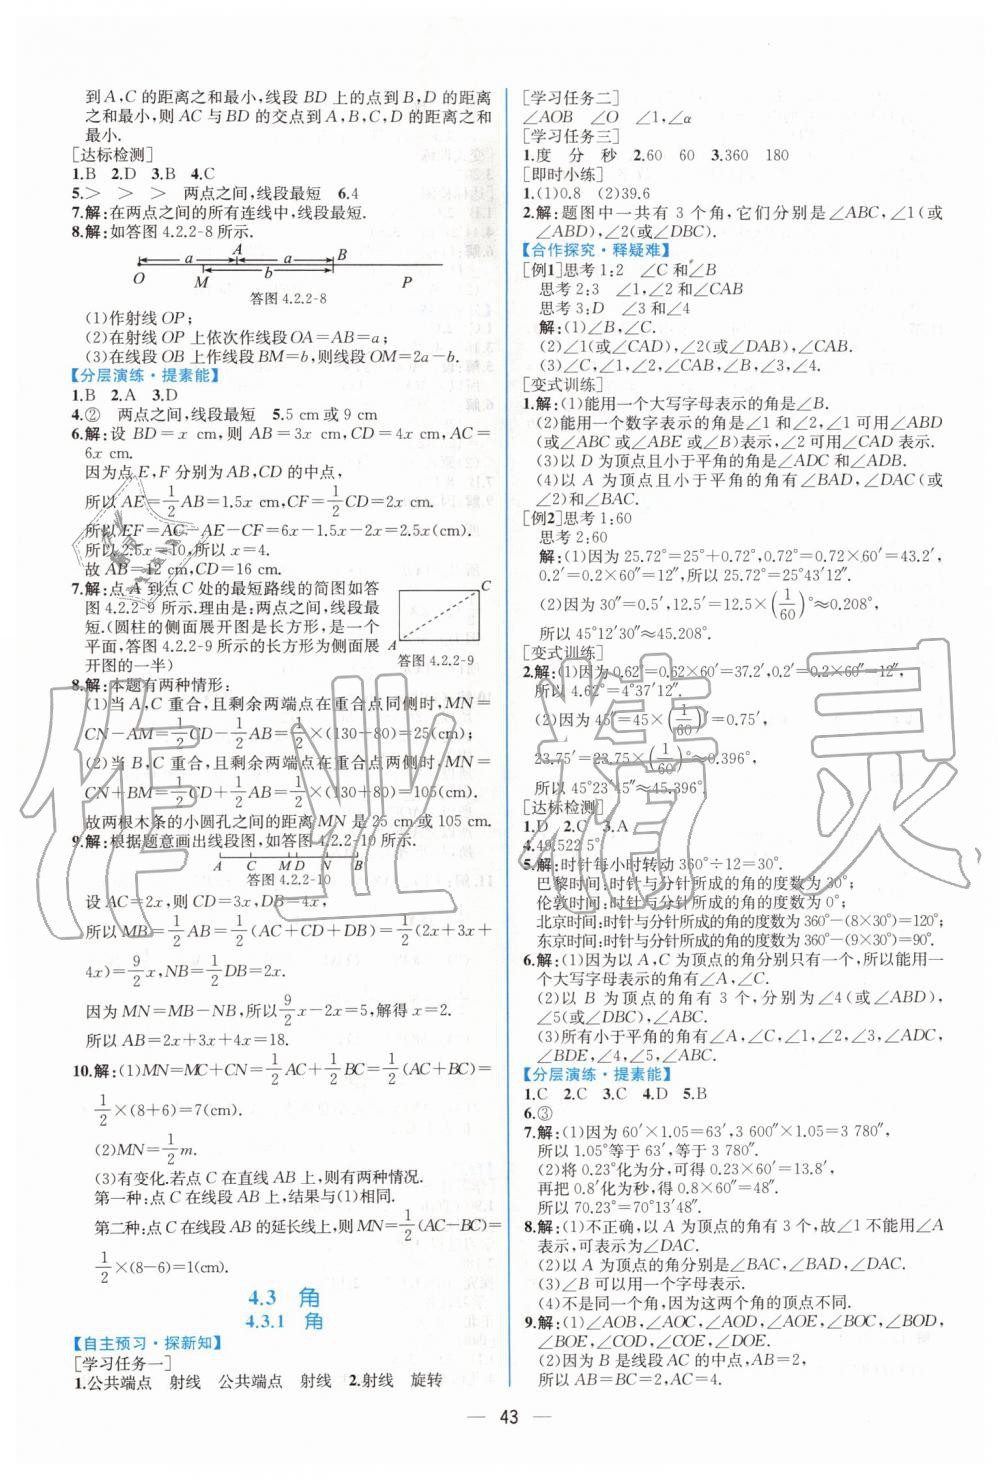 到A,C的距离之和最小,线段BD上的点到B,D的距离
之和最小,则AC与BD的交点到A,B,C,D的距离之和
最小.
[达标检测]
1.B 2.D 3.B 4.C
5.> > > 两点之间,线段最短 6.4
7.解:在两点之间的所有连线中,线段最短.
8.解:如答图4.2.2-8所示.
a A a
O M b B P
答图4.2.2-8
(1)作射线OP;
(2)在射线OP上依次作线段OA=AB=a;
(3)在线段OB上作线段BM=b,则线段OM=2a-b.
【分层演练·提素能】
1.B 2.A 3.D
4.② 两点之间,线段最短 5.5 cm或9 cm
6.解:设BD=x cm,则AB=3x cm,CD=4x cm,AC=
6x cm.
因为点E,F分别为AB,CD的中点,
所以AE=1/2AB=1.5x cm,CF=1/2CD=2x cm.
所以EF=AC-AE-CF=6x-1.5x-2x=2.5x(cm).
所以2.5x=10,所以x=4.
故AB=12 cm,CD=16 cm.
7.解:点A到点C处的最短路线的简图如答
图4.2.2-9所示.理由是:两点之间,线段最
短.(圆柱的侧面展开图是长方形,是一个
平面,答图4.2.2-9所示的长方形为侧面展
开图的一半)
C
A
答图4.2.2-9
8.解:本题有两种情形:
(1)当A,C重合,且剩余两端点在重合点同侧时,MN=
CN-AM=1/2CD-1/2AB=1/2×(130-80)=25(cm);
(2)当B,C重合,且剩余两端点在重合点两侧时,MN=
CN+BM=1/2CD+1/2AB=1/2×(130+80)=105(cm).
故两根木条的小圆孔之间的距离MN是25 cm或105 cm.
9.解:根据题意画出线段图,如答图4.2.2-10所示.
A C M D N B
答图4.2.2-10
设AC=2x,则CD=3x,DB=4x,
所以MB=1/2AB=1/2(AC+CD+DB)=1/2(2x+3x+
4x)=9/2x,NB=1/2DB=2x.
因为MN=MB-NB,所以9/2x-2x=5,解得x=2.
所以AB=2x+3x+4x=18.
10.解:(1)MN=MC+CN=1/2AC+1/2BC=1/2(AC+BC)=
1/2×(8+6)=7(cm).
(2)MN=1/2m.
(3)有变化.若点C在直线AB上,则有两种情况.
第一种:点C在线段AB上,结果与(1)相同.
第二种:点C在线段AB的延长线上,则MN=1/2(AC-BC)=
1/2×(8-6)=1(cm).
4.3 角
4.3.1 角
【自主预习·探新知】
[学习任务一]
1.公共端点 射线 公共端点 射线 2.射线 旋转
[学习任务二]
∠AOB ∠O ∠1,∠α
[学习任务三]
1.度 分 秒 2.60 60 3.360 180
[即时小练]
1.(1)0.8 (2)39.6
2.解:题图中一共有3个角,它们分别是∠ABC,∠1(或
∠ABD),∠2(或∠DBC).
【合作探究·释疑难】
[例1]思考1:2 ∠C和∠B
思考2:3 ∠1,∠2和∠CAB
思考3:D ∠3和∠4
解:(1)∠B,∠C.
(2)∠1(或∠CAD),∠2(或∠DAB),∠CAB.
(3)∠C,∠1,∠2,∠CAB,∠B,∠3,∠4.
[变式训练]
1.解:(1)能用一个大写字母表示的角是∠B.
(2)能用一个数字表示的角是∠1和∠2,∠1可用∠ABD
(或∠ABC或∠ABE或∠B)表示,∠2可用∠CAD表示.
(3)以D为顶点且小于平角的角是∠ADC和∠ADB.
(4)以A为顶点且小于平角的角有∠BAD,∠DAC(或
∠2)和∠BAC.
[例2]思考1:60
思考2:60
解:(1)因为25.72°=25°+0.72°,0.72°=0.72×60′=43.2′,
0.2′=0.2×60″=12″,所以25.72°=25°43′12″.
(2)因为30″=0.5′,12.5′=12.5×(1/60)°≈0.208°,
所以45°12′30″≈45.208°.
[变式训练]
2.解:(1)因为0.62°=0.62×60′=37.2′,0.2′=0.2×60″=12″,
所以4.62°=4°37′12″.
(2)因为45″=45×(1/60)′=0.75′,
23.75′=23.75×(1/60)°≈0.396°,
所以45°23′45″≈45.396°.
[达标检测]
1.D 2.C 3.A
4.49.522 5°
5.解:时针每小时转动360°÷12=30°.
巴黎时间:时针与分针所成的角的度数为30°;
伦敦时间:时针与分针所成的角的度数为0°;
北京时间:时针与分针所成的角的度数为360°-(8×30°)=120°;
东京时间:时针与分针所成的角的度数为360°-(9×30°)=90°.
6.解:(1)因为以A,C为顶点的角分别只有一个,所以能用一
个大写字母表示的角有∠A,∠C.
(2)以B为顶点的角有3个,分别为∠4(或∠ABD),
∠5(或∠DBC),∠ABC.
(3)所有小于平角的角有∠A,∠C,∠1,∠2,∠3,∠ADC,
∠BDE,∠4,∠5,∠ABC.
【分层演练·提素能】
1.C 2.C 3.C 4.D 5.B
6.③
7.解:(1)因为60′×1.05=63′,3 600″×1.05=3 780″,
所以1.05°等于63′,等于3 780″.
(2)将0.23°化为分,可得0.23×60′=13.8′,
再把0.8′化为秒,得0.8×60″=48″.
所以70.23°=70°13′48″.
8.解:(1)不正确,以A为顶点的角有3个,故∠1不能用∠A
表示,可表示为∠DAC.
(2)以A为顶点的角分别是∠BAC,∠BAD,∠DAC.
(3)∠B可以用一个字母表示.
(4)不是同一个角,因为这两个角的顶点不同.
9.解:(1)∠AOB,∠AOC,∠AOD,∠AOE,∠BOC,∠BOD,
∠BOE,∠COD,∠COE,∠DOE.
(2)因为B是线段AC的中点,AB=2,
所以AB=BC=2,AC=4.
— 43 —
作业精灵